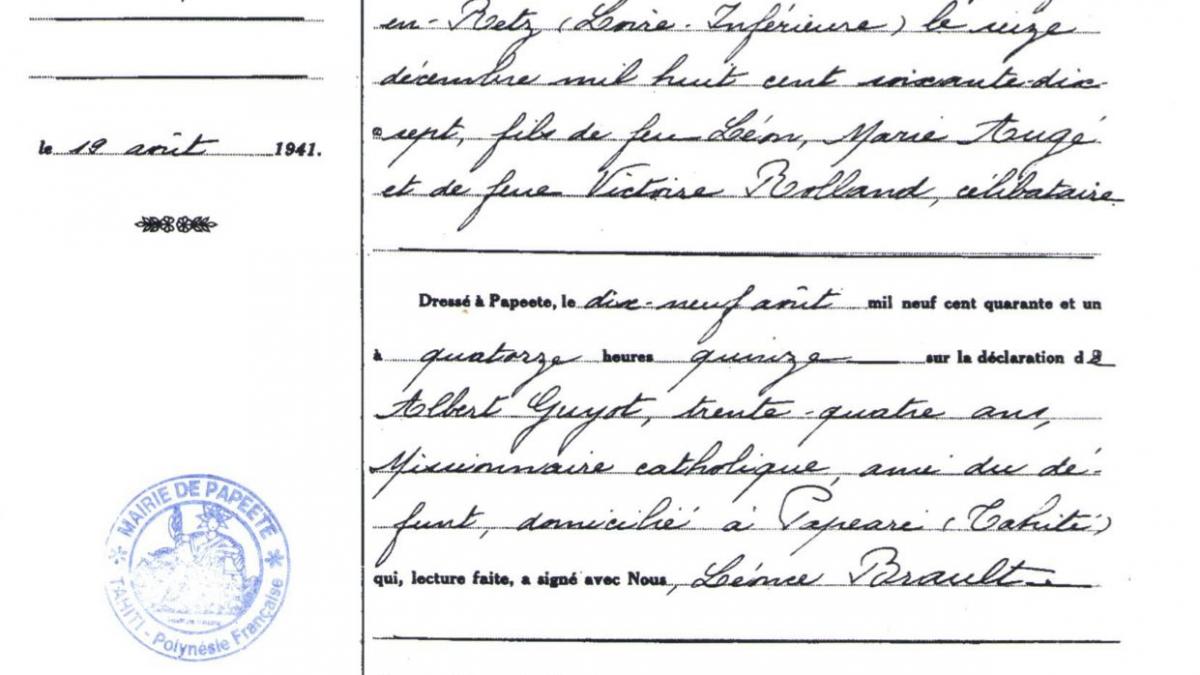 le 19 août 1941.
en-Retz (Loire-Inférieure) le seize
décembre mil huit cent soixante-dix-
sept, fils de feu Léon, Marie Augé
et de feue Victoire Rolland, célibataire
Dressé à Papeete, le dix-neuf août mil neuf cent quarante et un
à quatorze heures quinze sur la déclaration de
Albert Guyot, trente-quatre ans,
Missionnaire catholique, ami du dé-
funt, domicilié à Papeari (Tahiti)
qui, lecture faite, a signé avec Nous, Léonce Brault
MAIRIE DE PAPEETE
TAHITI - Polynésie Française